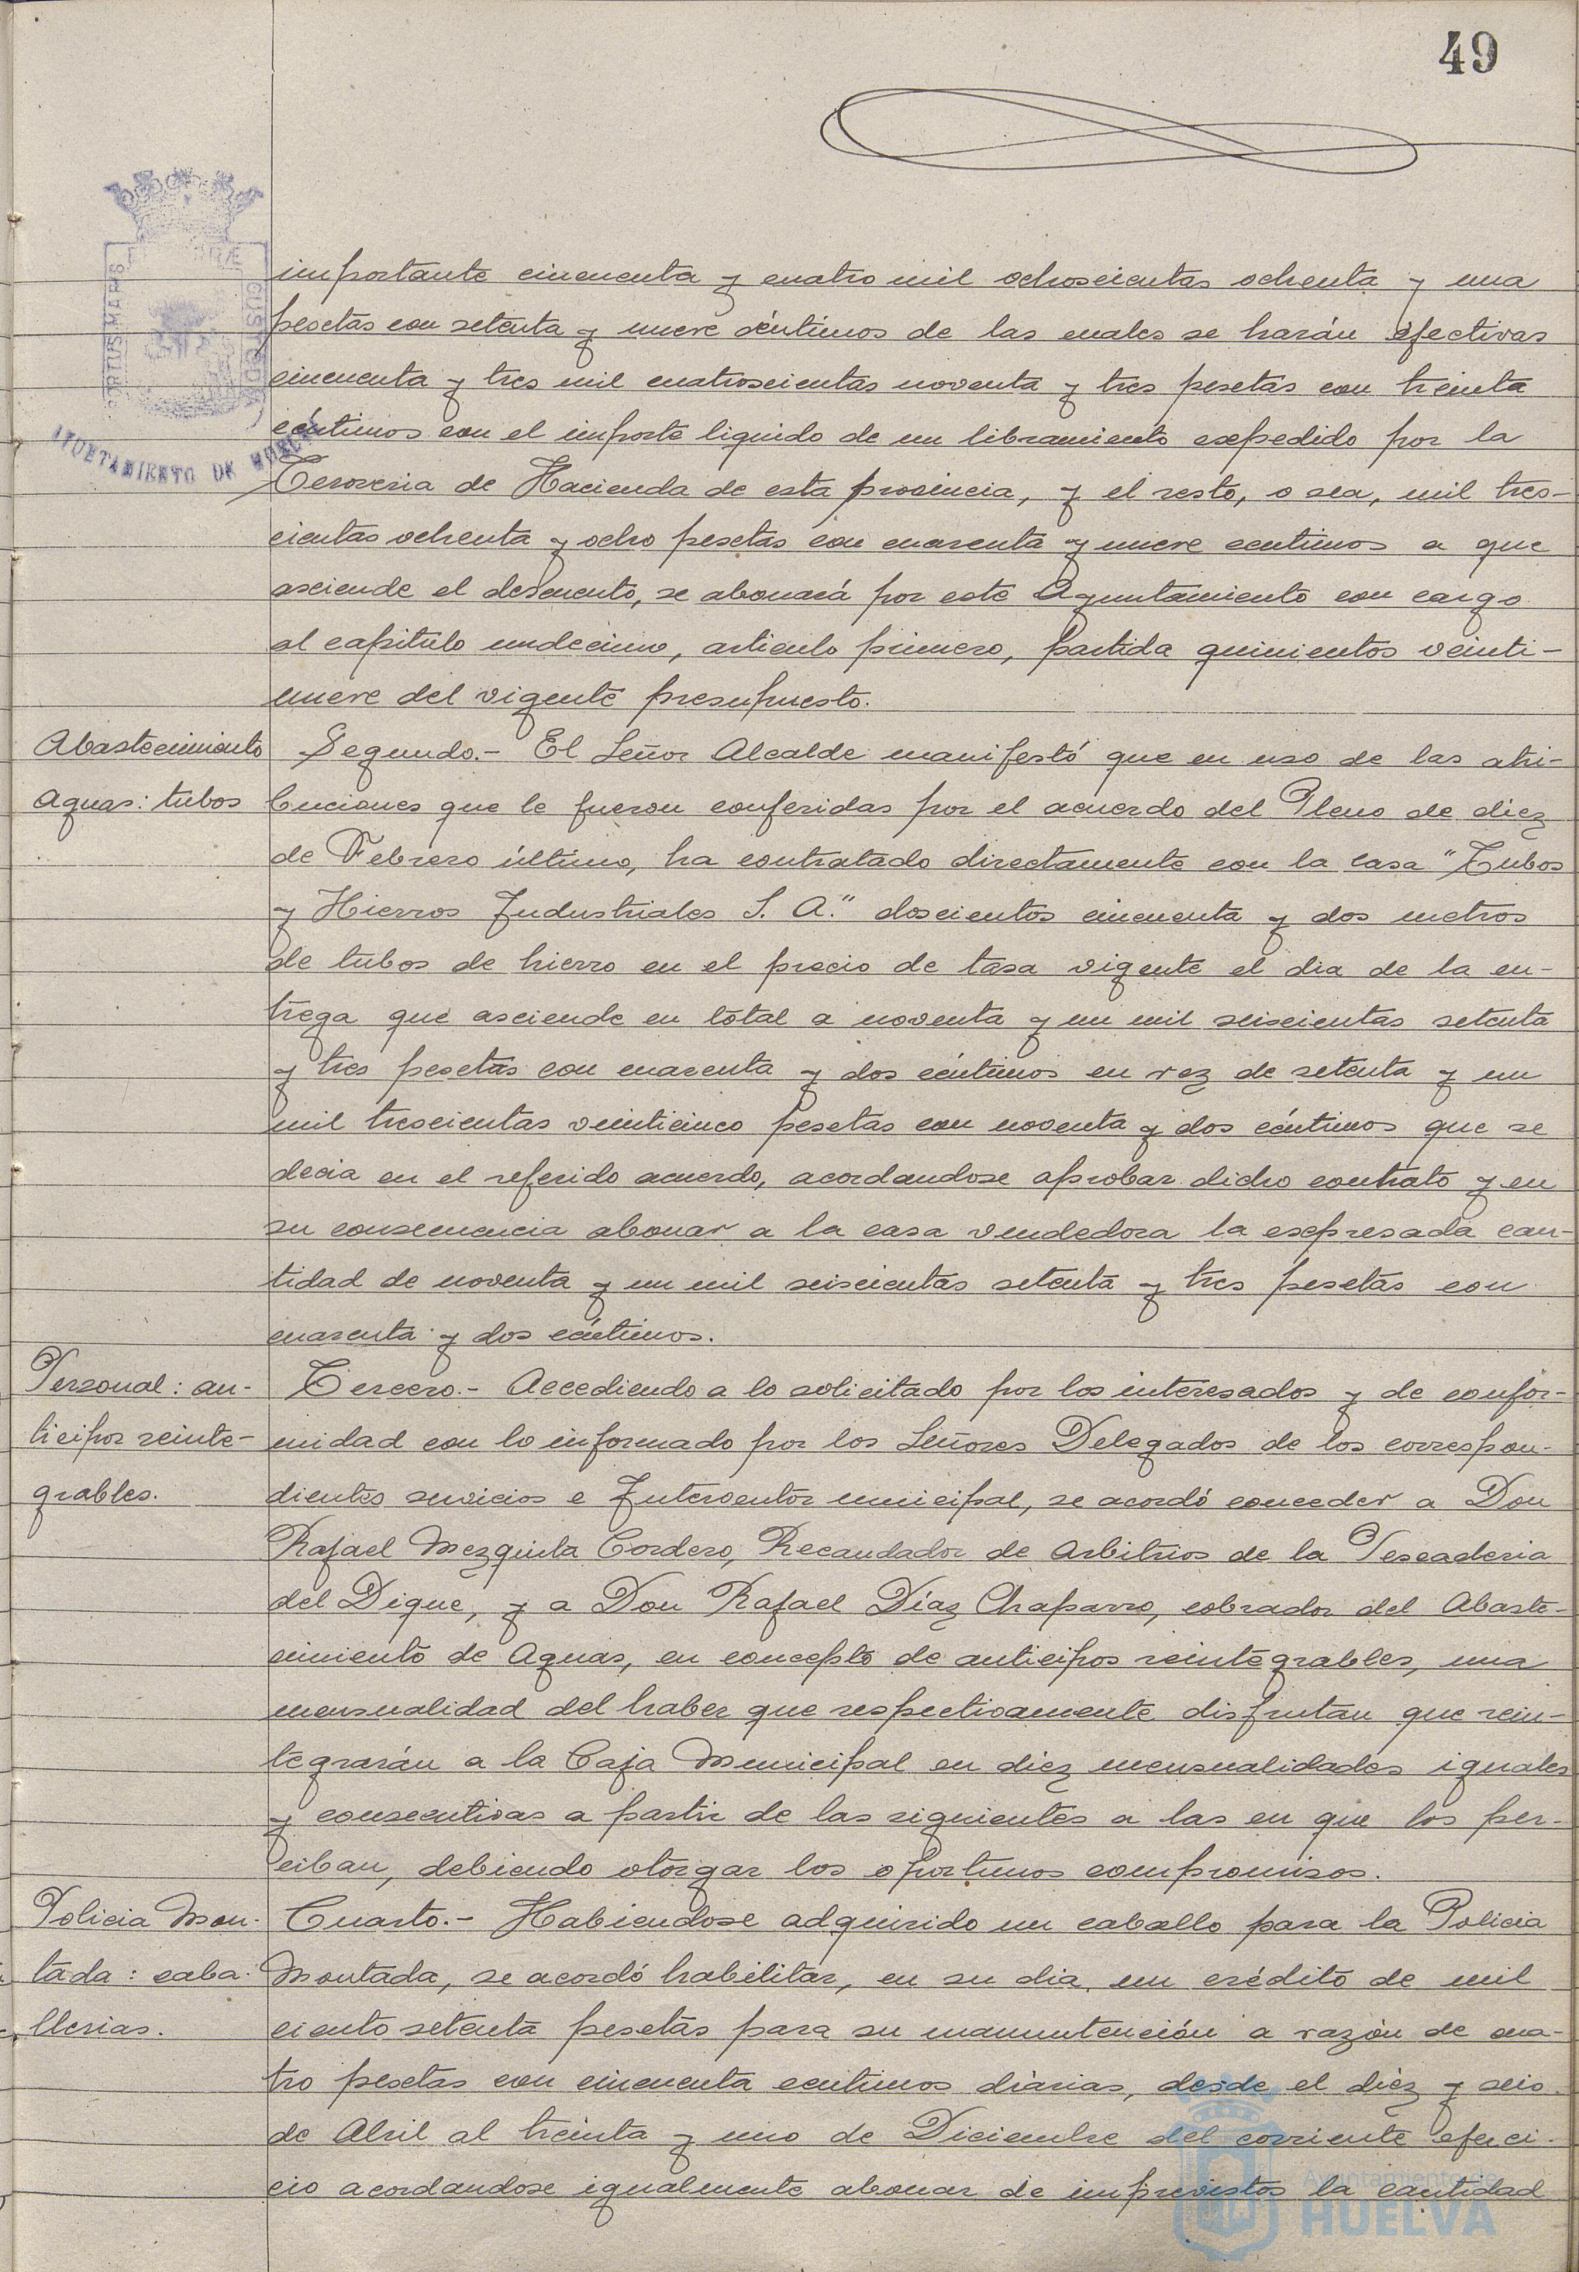 49
PORTUS MARIS
CUSTODIA
AYUNTAMIENTO DE HUELVA
importante cincuenta y cuatro mil ochoscientas ochenta y una
pesetas con setenta y nueve céntimos de las cuales se harán efectivas
cincuenta y tres mil cuatroscientas noventa y tres pesetas con treinta
céntimos con el importe liquido de un libramiento expedido por la
Tesoreria de Hacienda de esta provincia, y el resto, o sea, mil tres-
cientas ochenta y ocho pesetas con cuarenta y nueve centimos a que
asciende el descuento, se abonará por este Ayuntamiento con cargo
al capitulo undecimo, articulo primero, partida quinientos veinti-
nueve del vigente presupuesto.
Abastecimiento
Aguas: tubos
Segundo.- El Señor Alcalde manifestó que en uso de las atri-
buciones que le fueron conferidas por el acuerdo del Pleno de diez
de Febrero último, ha contratado directamente con la casa "Tubos
y Hierros Industriales S. A." doscientos cincuenta y dos metros
de tubos de hierro en el precio de tasa vigente el dia de la en-
trega que asciende en total a noventa y un mil seiscientas setenta
y tres pesetas con cuarenta y dos céntimos en vez de setenta y un
mil trescientas veinticinco pesetas con noventa y dos céntimos que se
decia en el referido acuerdo, acordandose aprobar dicho contrato y en
su consecuencia abonar a la casa vendedora la expresada can-
tidad de noventa y un mil seiscientas setenta y tres pesetas con
cuarenta y dos céntimos.
Personal: an-
ticipos reinte-
grables.
Tercero.- Accediendo a lo solicitado por los interesados y de confor-
midad con lo informado por los Señores Delegados de los correspon-
dientes servicios e Interventor municipal, se acordó conceder a Don
Rafael Mezquita Cordero, Recaudador de Arbitrios de la Pescaderia
del Dique, y a Don Rafael Díaz Chaparro, cobrador del Abaste-
cimiento de Aguas, en concepto de anticipos reintegrables, una
mensualidad del haber que respectivamente disfrutan que rein-
tegrarán a la Caja Municipal en diez mensualidades iguales
y consecutivas a partir de las siguientes a las en que los per-
ciban, debiendo otorgar los oportunos compromisos.
Policia Mon-
tada: caba-
llerias.
Cuarto.- Habiendose adquirido un caballo para la Policia
Montada, se acordó habilitar, en su dia, un crédito de mil
ciento setenta pesetas para su manuntención a razón de cua-
tro pesetas con cincuenta centimos diarias, desde el diez y seis
de Abril al treinta y uno de Diciembre del corriente ejerci-
cio acordandose igualmente abonar de imprevistos la cantidad
Ayuntamiento de
HUELVA